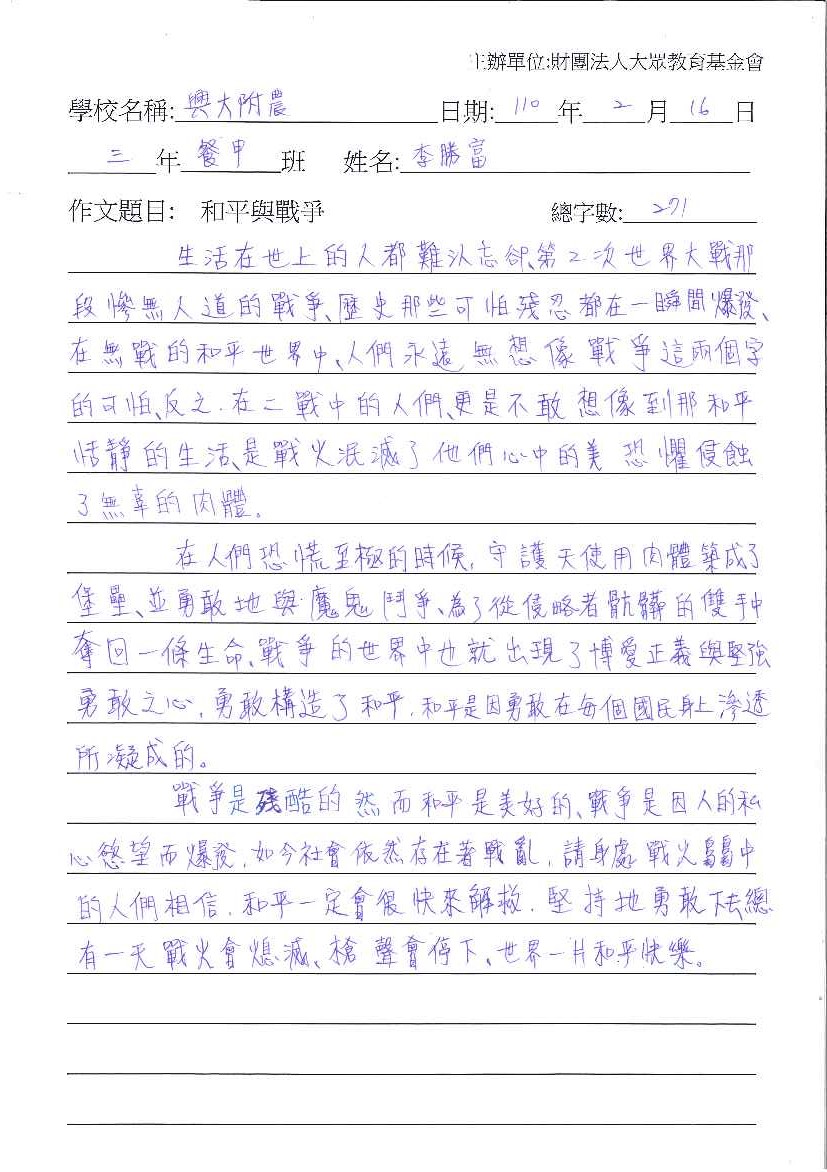 主辦單位:財團法人大眾教育基金會
學校名稱: 興大附農 日期: 110 年 2 月 16 日
三 年 餐甲 班 姓名: 李勝富
作文題目: 和平與戰爭 總字數: 271
生活在世上的人都難以忘卻、第2次世界大戰那
段慘無人道的戰爭、歷史那些可怕殘忍都在一瞬間爆發、
在無戰的和平世界中、人們永遠無想像戰爭這兩個字
的可怕、反之.在二戰中的人們、更是不敢想像到那和平
恬靜的生活、是戰火泯滅了他們心中的美恐懼侵蝕
了無辜的肉體。
在人們恐慌至極的時候,守護天使用肉體築成了
堡壘、並勇敢地與魔鬼鬥爭、為了從侵略者骯髒的雙手中
奪回一條生命、戰爭的世界中也就出現了博愛正義與堅強
勇敢之心,勇敢構造了和平,和平是因勇敢在每個國民身上滲透
所凝成的。
戰爭是殘酷的然而和平是美好的、戰爭是因人的私
心慾望而爆發,如今社會依然存在著戰亂,請身處戰火中
的人們相信,和平一定會很快來解救,堅持地勇敢下去總
有一天戰火會熄滅、槍聲會停下、世界一片和平快樂。